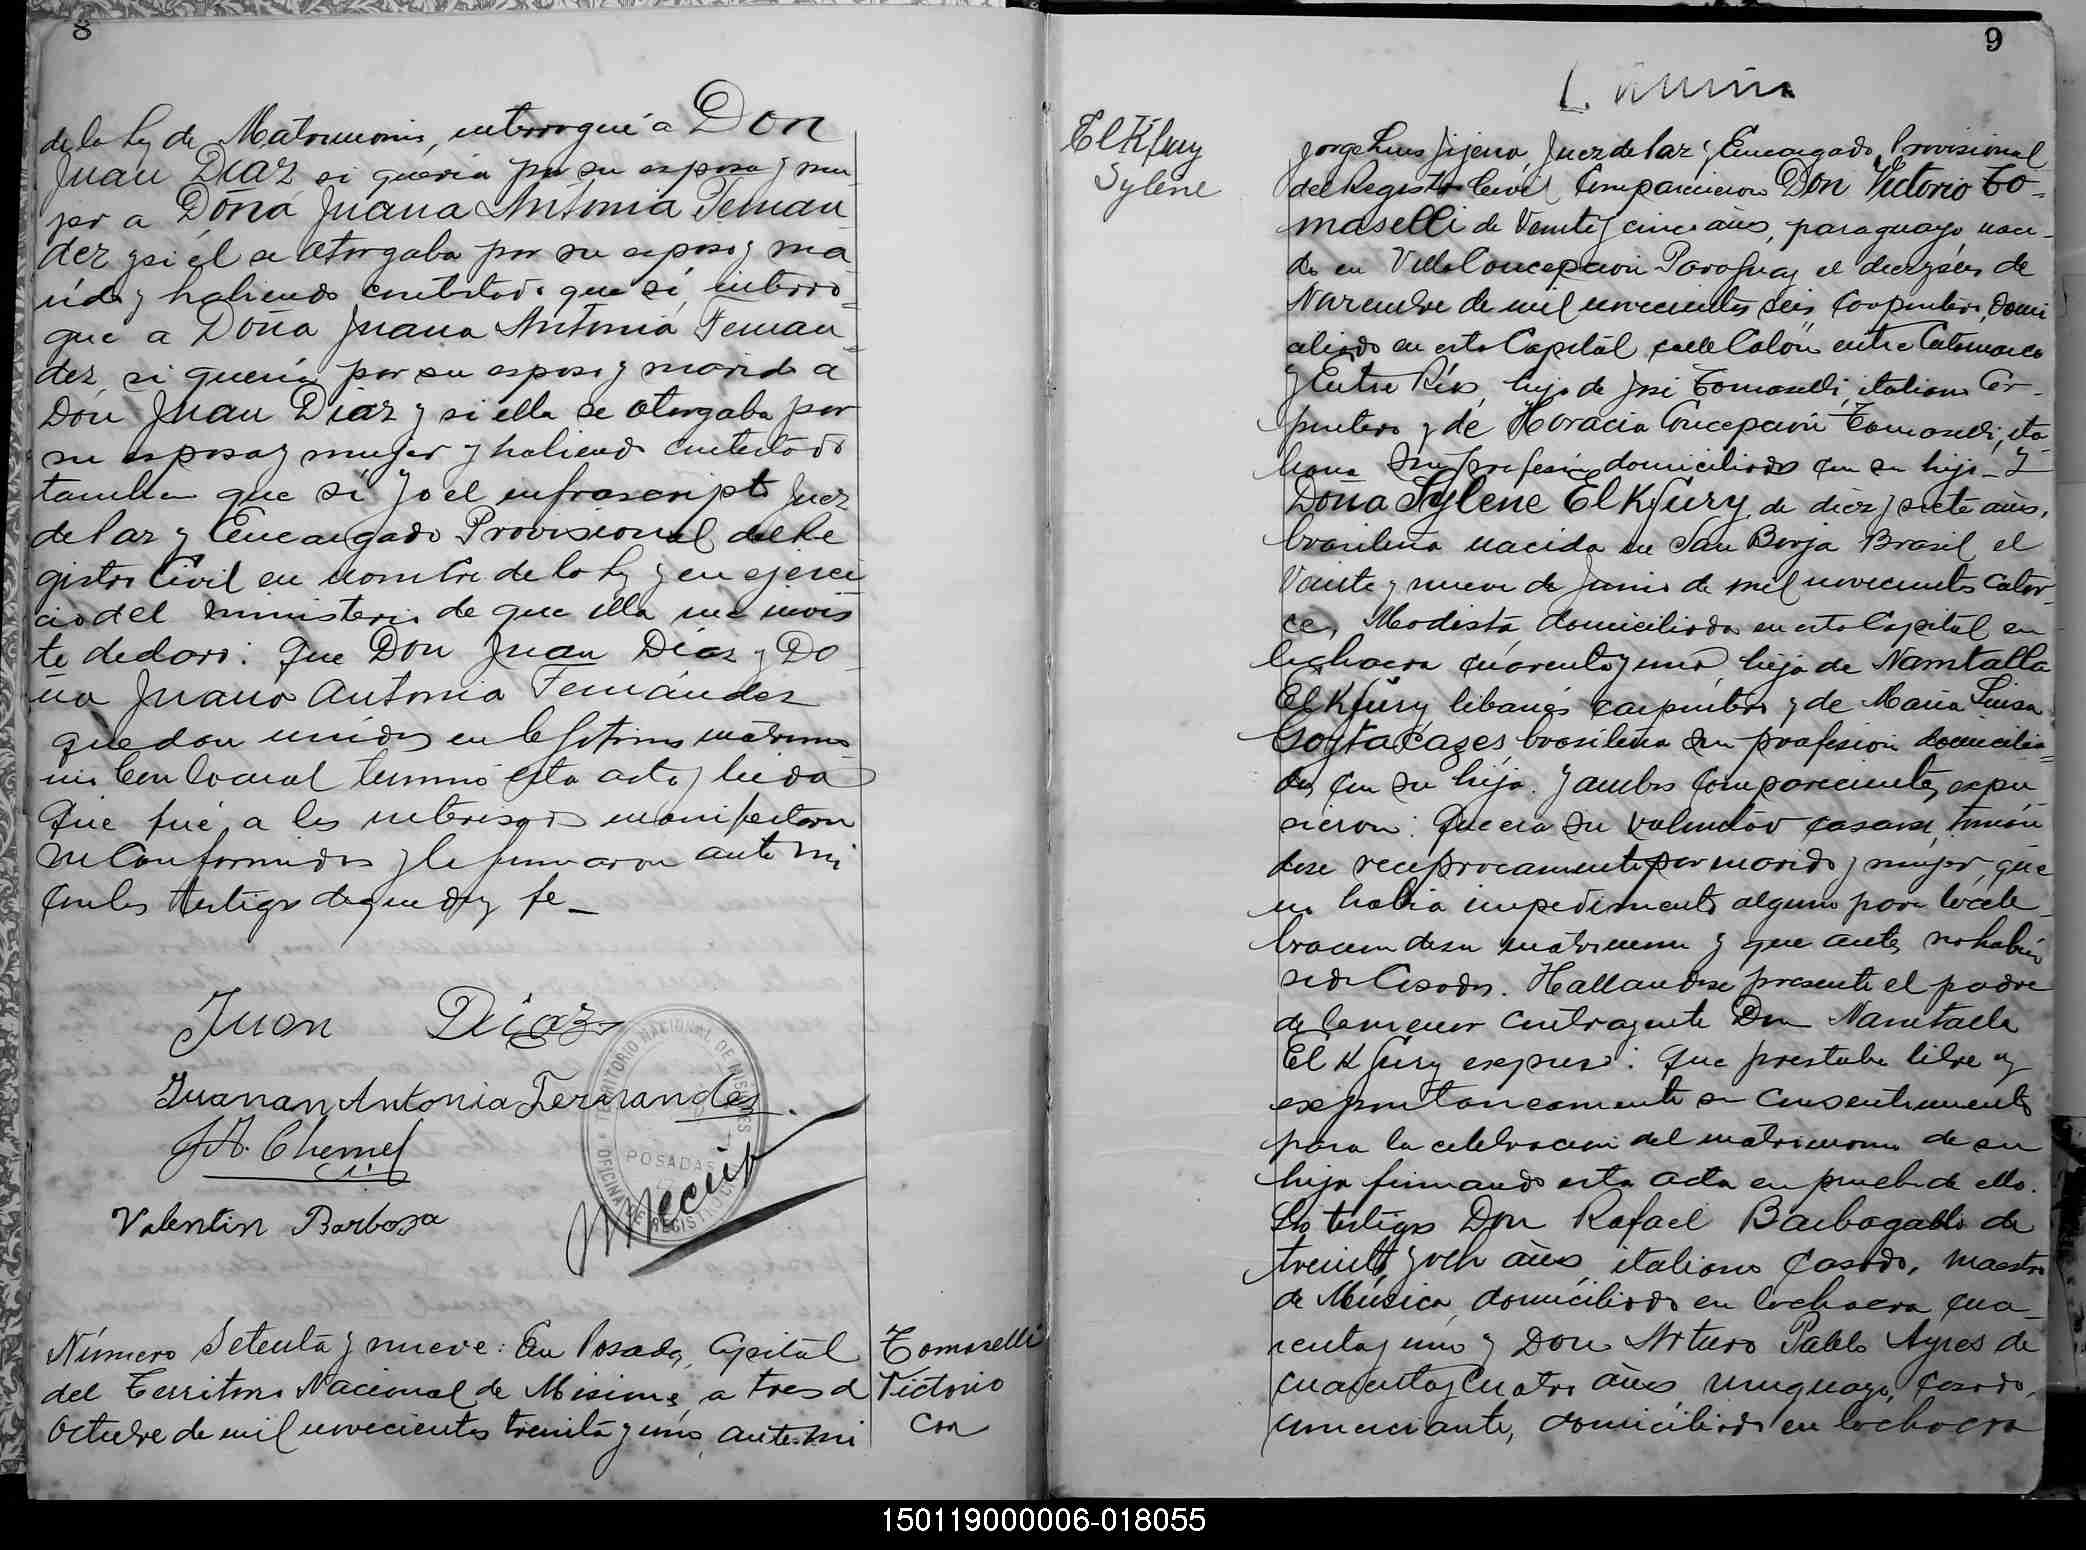 8
de la ley de Matrimonio, interrogué a Don
Juan Diaz si queria por su esposa y mu-
jer a Doña Juana Antonia Fernan
dez y si él se otorgaba por su esposo y ma-
rido y habiendo contestado que sí, interro-
gué a Doña Juana Antonia Fernan
dez si queria por su esposo y marido a
Don Juan Diaz y si ella se otorgaba por
su esposa y mujer y habiendo contestado
tambien que sí Yo el infrascripto Juez
de Paz y Encargado Provisional del Re
gistro Civil en nombre de la ley y en ejerci
cio del ministerio de que ella me invis
te declaro: Que Don Juan Diaz y Do-
ña Juana Antonia Fernández
quedan unidos en legitimo matrimo
nio Con lo cual terminó esta acta y leida
que fué a los interesados manifestaron
su conformidad y la firmaron ante mi
con los testigos de que doy fe_
Juan Diaz
TERRITORIO NACIONAL DE MISIONES
POSADAS
OFICINA REGISTRO CIVIL
Juanan Antonia Fernandez.
Valentin Barboza
Número Setenta y nueve: En Posadas, Capital
del Territorio Nacional de Misiones, a tres d
Octubre de mil novecientos treinta y uno, ante mi
Tomaselli
Victorio
con
9
El Kfury
Sylene
Jorge Luis Jijena, Juez de Paz y Encargado Provisional
del Registro Civil Comparecieron Don Victorio To-
maselli de veinte y cinco años, paraguayo naci-
do en Villa Concepcion Paraguay el diez y seis de
Noviembre de mil novecientos seis, carpintero, domi
ciliado en esta Capital calle Colón entre Catamarca
y Entre Ríos, hijo de José Tomaselli, italiano Car-
pintero y de Horacia Concepción Tomaselli, ita
liana sin profesión domiciliados con su hijo_ Y
Doña Sylene El Kfury, de diez y siete años,
brasileña nacida en San Borja Brasil el
Veinte y nueve de Junio de mil novecientos cator-
ce, Modista domiciliada en esta Capital en
la chacra cuarenta y uno, hija de Namtalla
El Kfury libanés carpintero y de Maria Luisa
Goytacazes, brasileña sin profesión domicilia-
dos con su hija. Y ambos comparecientes expu
sieron: Que era su voluntad casarse, tomán
dose reciprocamente por marido y mujer, que
no habia impedimento alguno para la cele-
bracion de su matrimonio y que antes no habian
sido casados. Hallandose presente el padre
de la menor contrayente Don Namtalla
El Kfury expuso: Que prestaba libre y
expontaneamente su consentimiento
para la celebracion del matrimonio de su
hija firmando esta acta en prueba de ello.
Los testigos Don Rafael Barbagallo de
treinta y och años italiano casado, maestro
de Música, domiciliado en la chacra cua-
renta y uno y Don Arturo Pablo Ayres de
cuarenta y cuatro años uruguayo, casado,
comerciante, domiciliado en la chacra
150119000006-018055